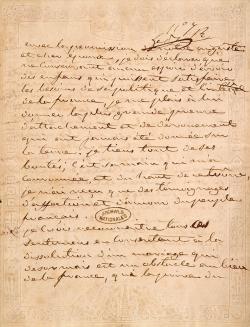 avec la permission de notre auguste
et cher époux, je dois déclarer que
ne conservant aucun espoir d'avoir
des enfans qui puissent satisfaire
les besoins de sa politique et l'intérêt
de la france, je me plais à lui
donner la plus grande preuve
d'attachement et de dévouement
qui ait jamais été donnée sur
la terre. je tiens tout de ses
bontés; c'est sa main qui m'a
couronnée et du haut de ce trône
je n'ai reçu que des témoignages
d'affection et d'amour du peuple
français.
ARCHIVES
NATIONALES
je crois reconnaitre tous ces
sentimens en consentant à la
dissolution d'un mariage qui
désormais est un obstacle au bien
de la france, qui la prive du